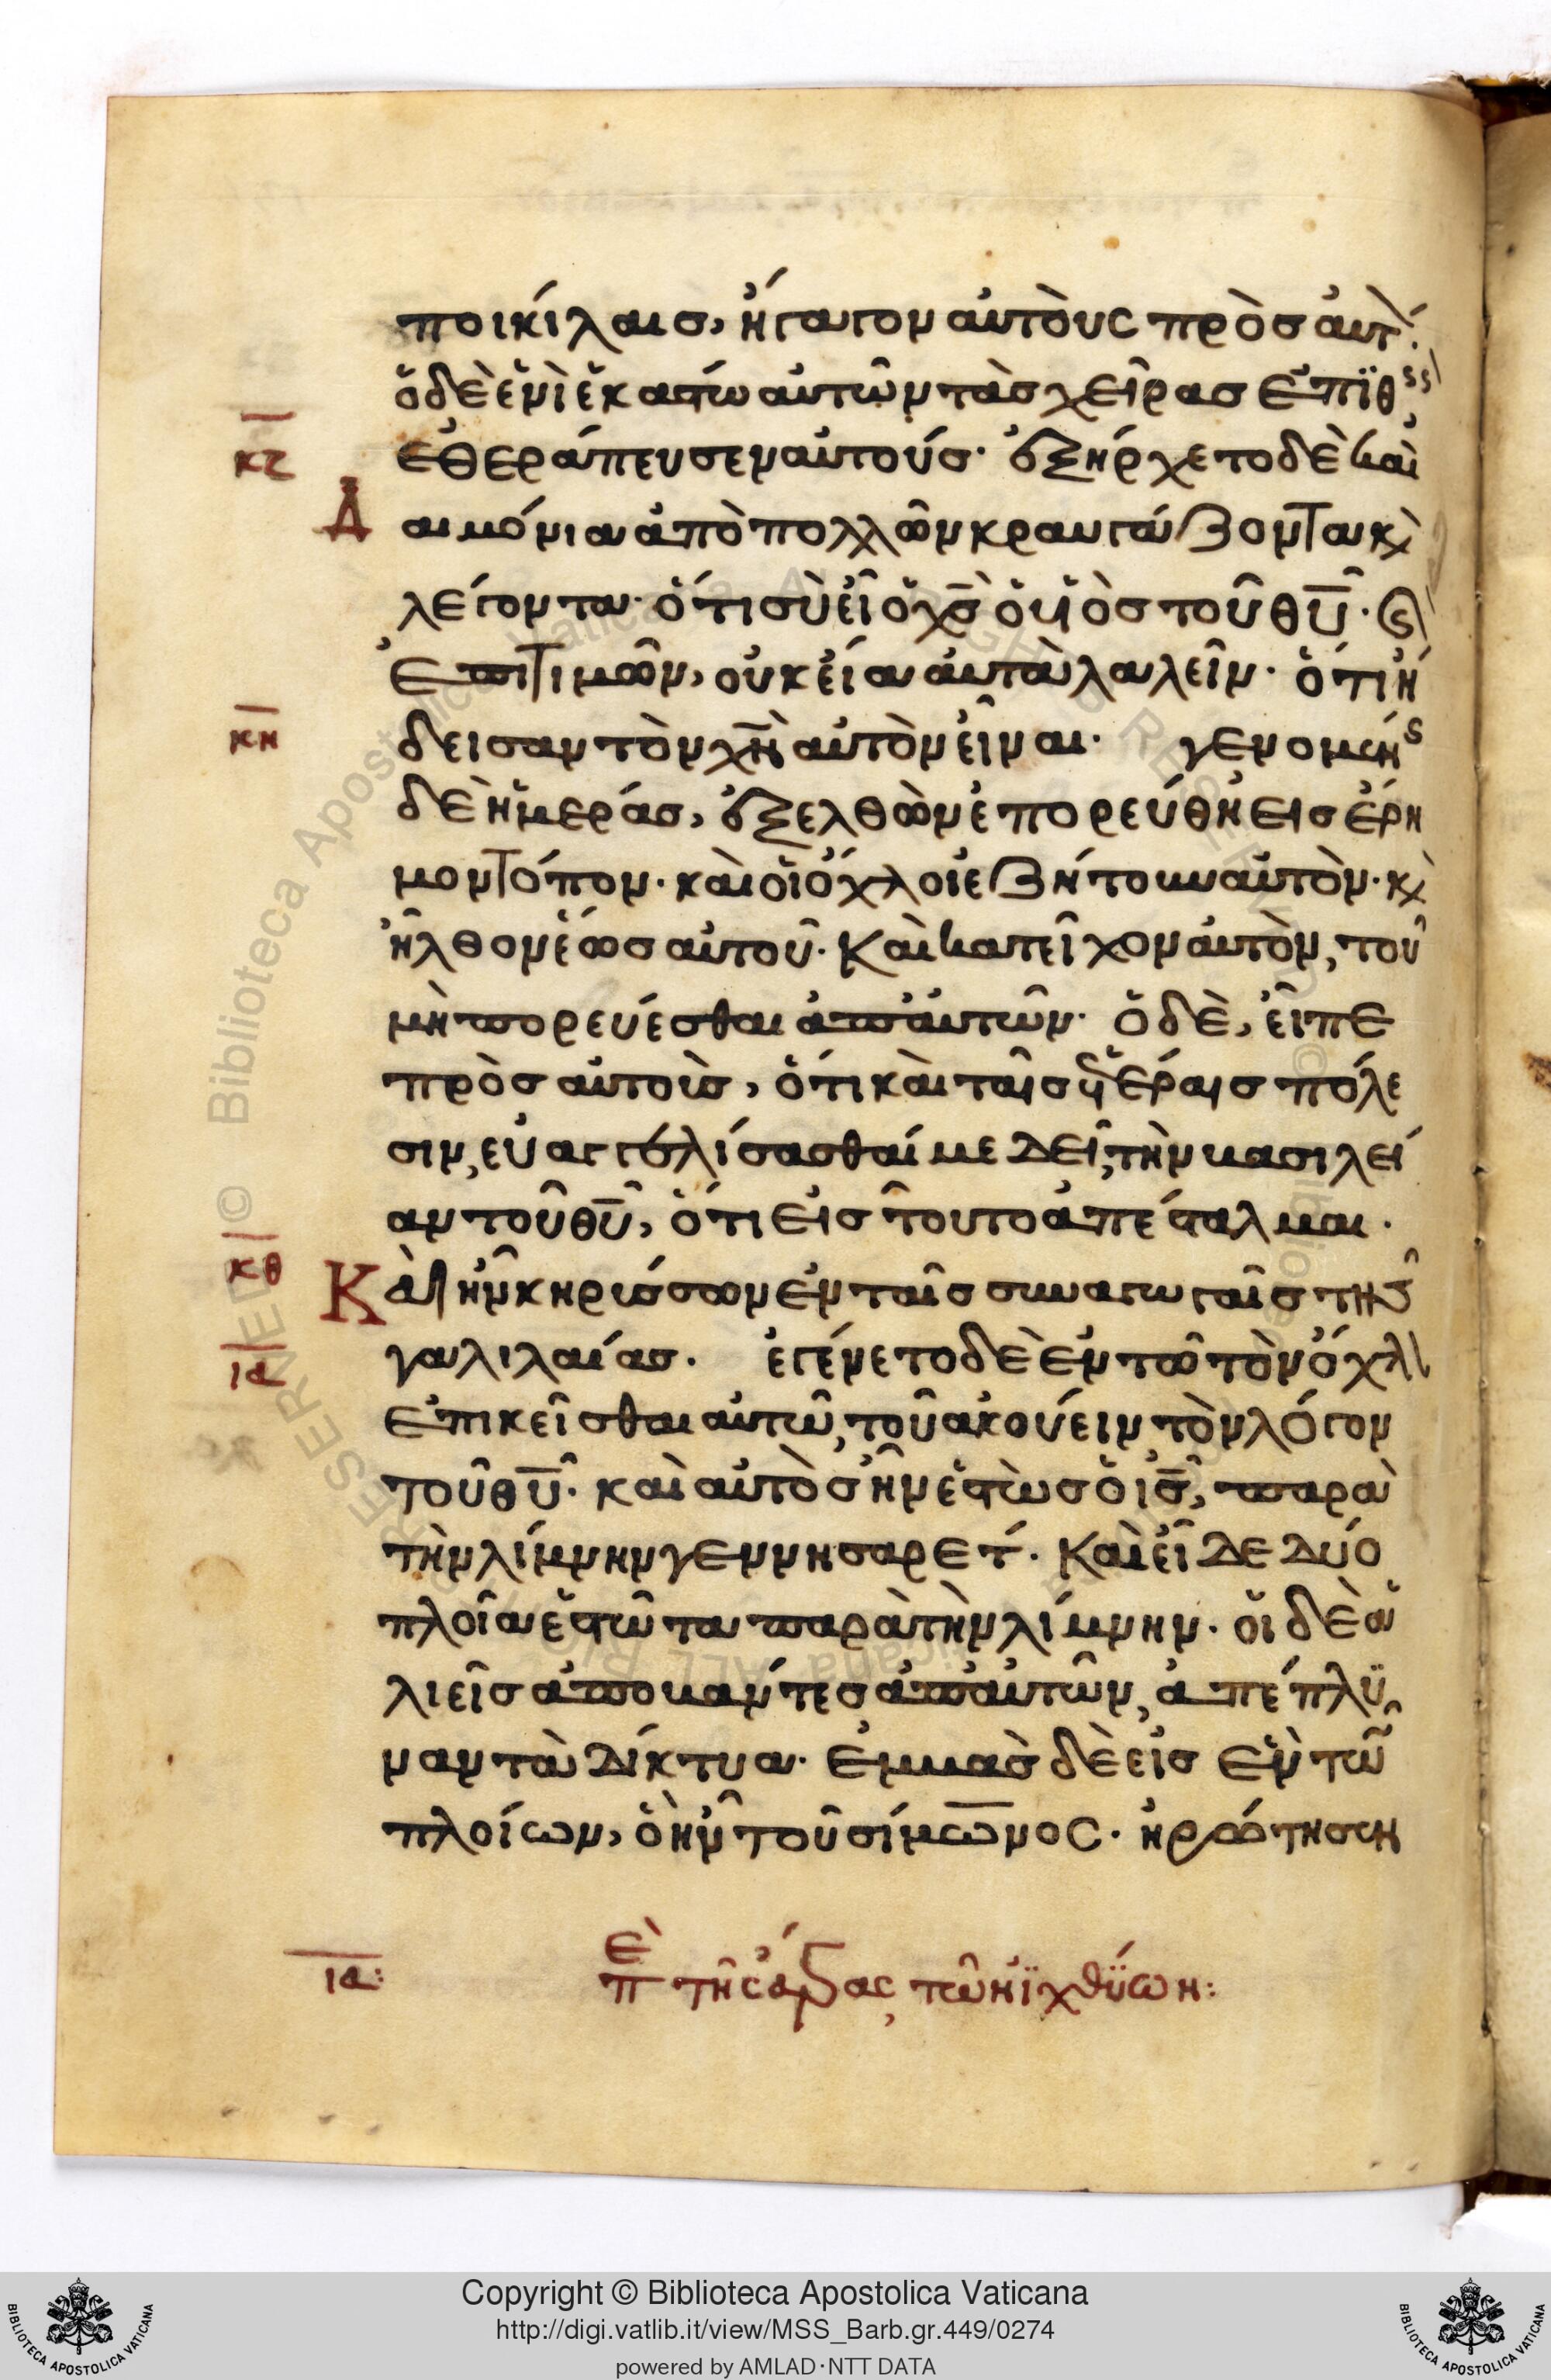 ποικίλαις, ἤγαγον αὐτοὺς πρὸς αὐτ·
ὁ δὲ ἑνὶ ἑκάστω αὐτῶν τὰς χεῖρας ἐπϊθ
κζ
ἐθεράπευσεν αὐτούς· ἐξήρχετο δὲ καὶ
Δαιμόνια ἀπὸ πολλῶν κραυγάζοντα κ
λέγοντα· ὅτι σὺ εἶ ὁ χς ὁ υἱὸς τοῦ θυ·
ἐπιτιμῶν, οὐκ εἴα αὐτὰ λαλεῖν· ὅτι ἤ
κη
δεισαν τὸν χν αὐτὸν εἶναι· γενομένης
δὲ ἡμέρας, ἐξελθὼν ἐπορεύθη εἰς ἔρη
μον τόπον· καὶ οἱ ὄχλοι ἐζήτουν αὐτὸν· κ
ἦλθον ἕως αὐτοῦ· Καὶ κατεῖχον αὐτὸν, τοῦ
μὴ πορεύεσθαι ἀπ' αὐτῶν· ὁ δὲ, εἶπε
πρὸς αὐτοὺς, ὅτι καὶ ταῖς ἑτέραις πόλε
σιν, εὐαγγελίσασθαί με δεῖ, τὴν βασιλεί
αν τοῦ θυ, ὅτι εἰς τοῦτο ἀπέσταλμαι·
κθ
Καὶ ἦν κηρύσσων ἐν ταῖς συναγωγαῖς τῆς
ια
γαλιλαίας· ἐγένετο δὲ ἐν τῶ τὸν ὄχλ
ἐπικεῖσθαι αὐτῶ, τοῦ ἀκούειν τὸν λόγον
τοῦ θυ· καὶ αὐτὸς ἦν ἑστὼς ὁ ις, παρὰ
τὴν λίμνην γεννησαρέτ· Καὶ εἶδε δύο
πλοῖα ἑστῶτα παρὰ τὴν λίμνην· οἱ δὲ ἁ
λιεῖς ἀποβάντες ἀπ' αὐτῶν, ἀπέπλϋ
ναν τὰ δίκτυα· ἐμβὰς δὲ εἰς ἓν τῶν
πλοίων, ὃ ἦν τοῦ σίμωνος· ἠρώτησεν
ια: πε τῆς ἄγρας τῶν ϊχθϋων:
Copyright © Biblioteca Apostolica Vaticana
http://digi.vatlib.it/view/MSS_Barb.gr.449/0274
powered by AMLAD·NTT DATA